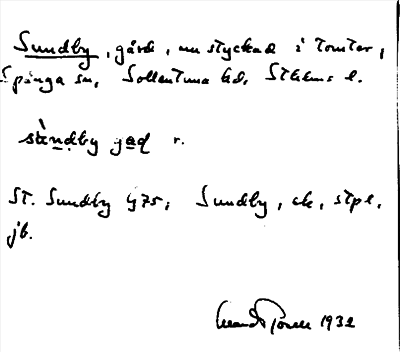 Sundby, gård, nu styckad i tomter,
Spånga sn, Sollentuna hd, Sthlms l.
sùndby gaḍ r.
St. Sundby G75; Sundby, ek, stpl,
jb.
1932